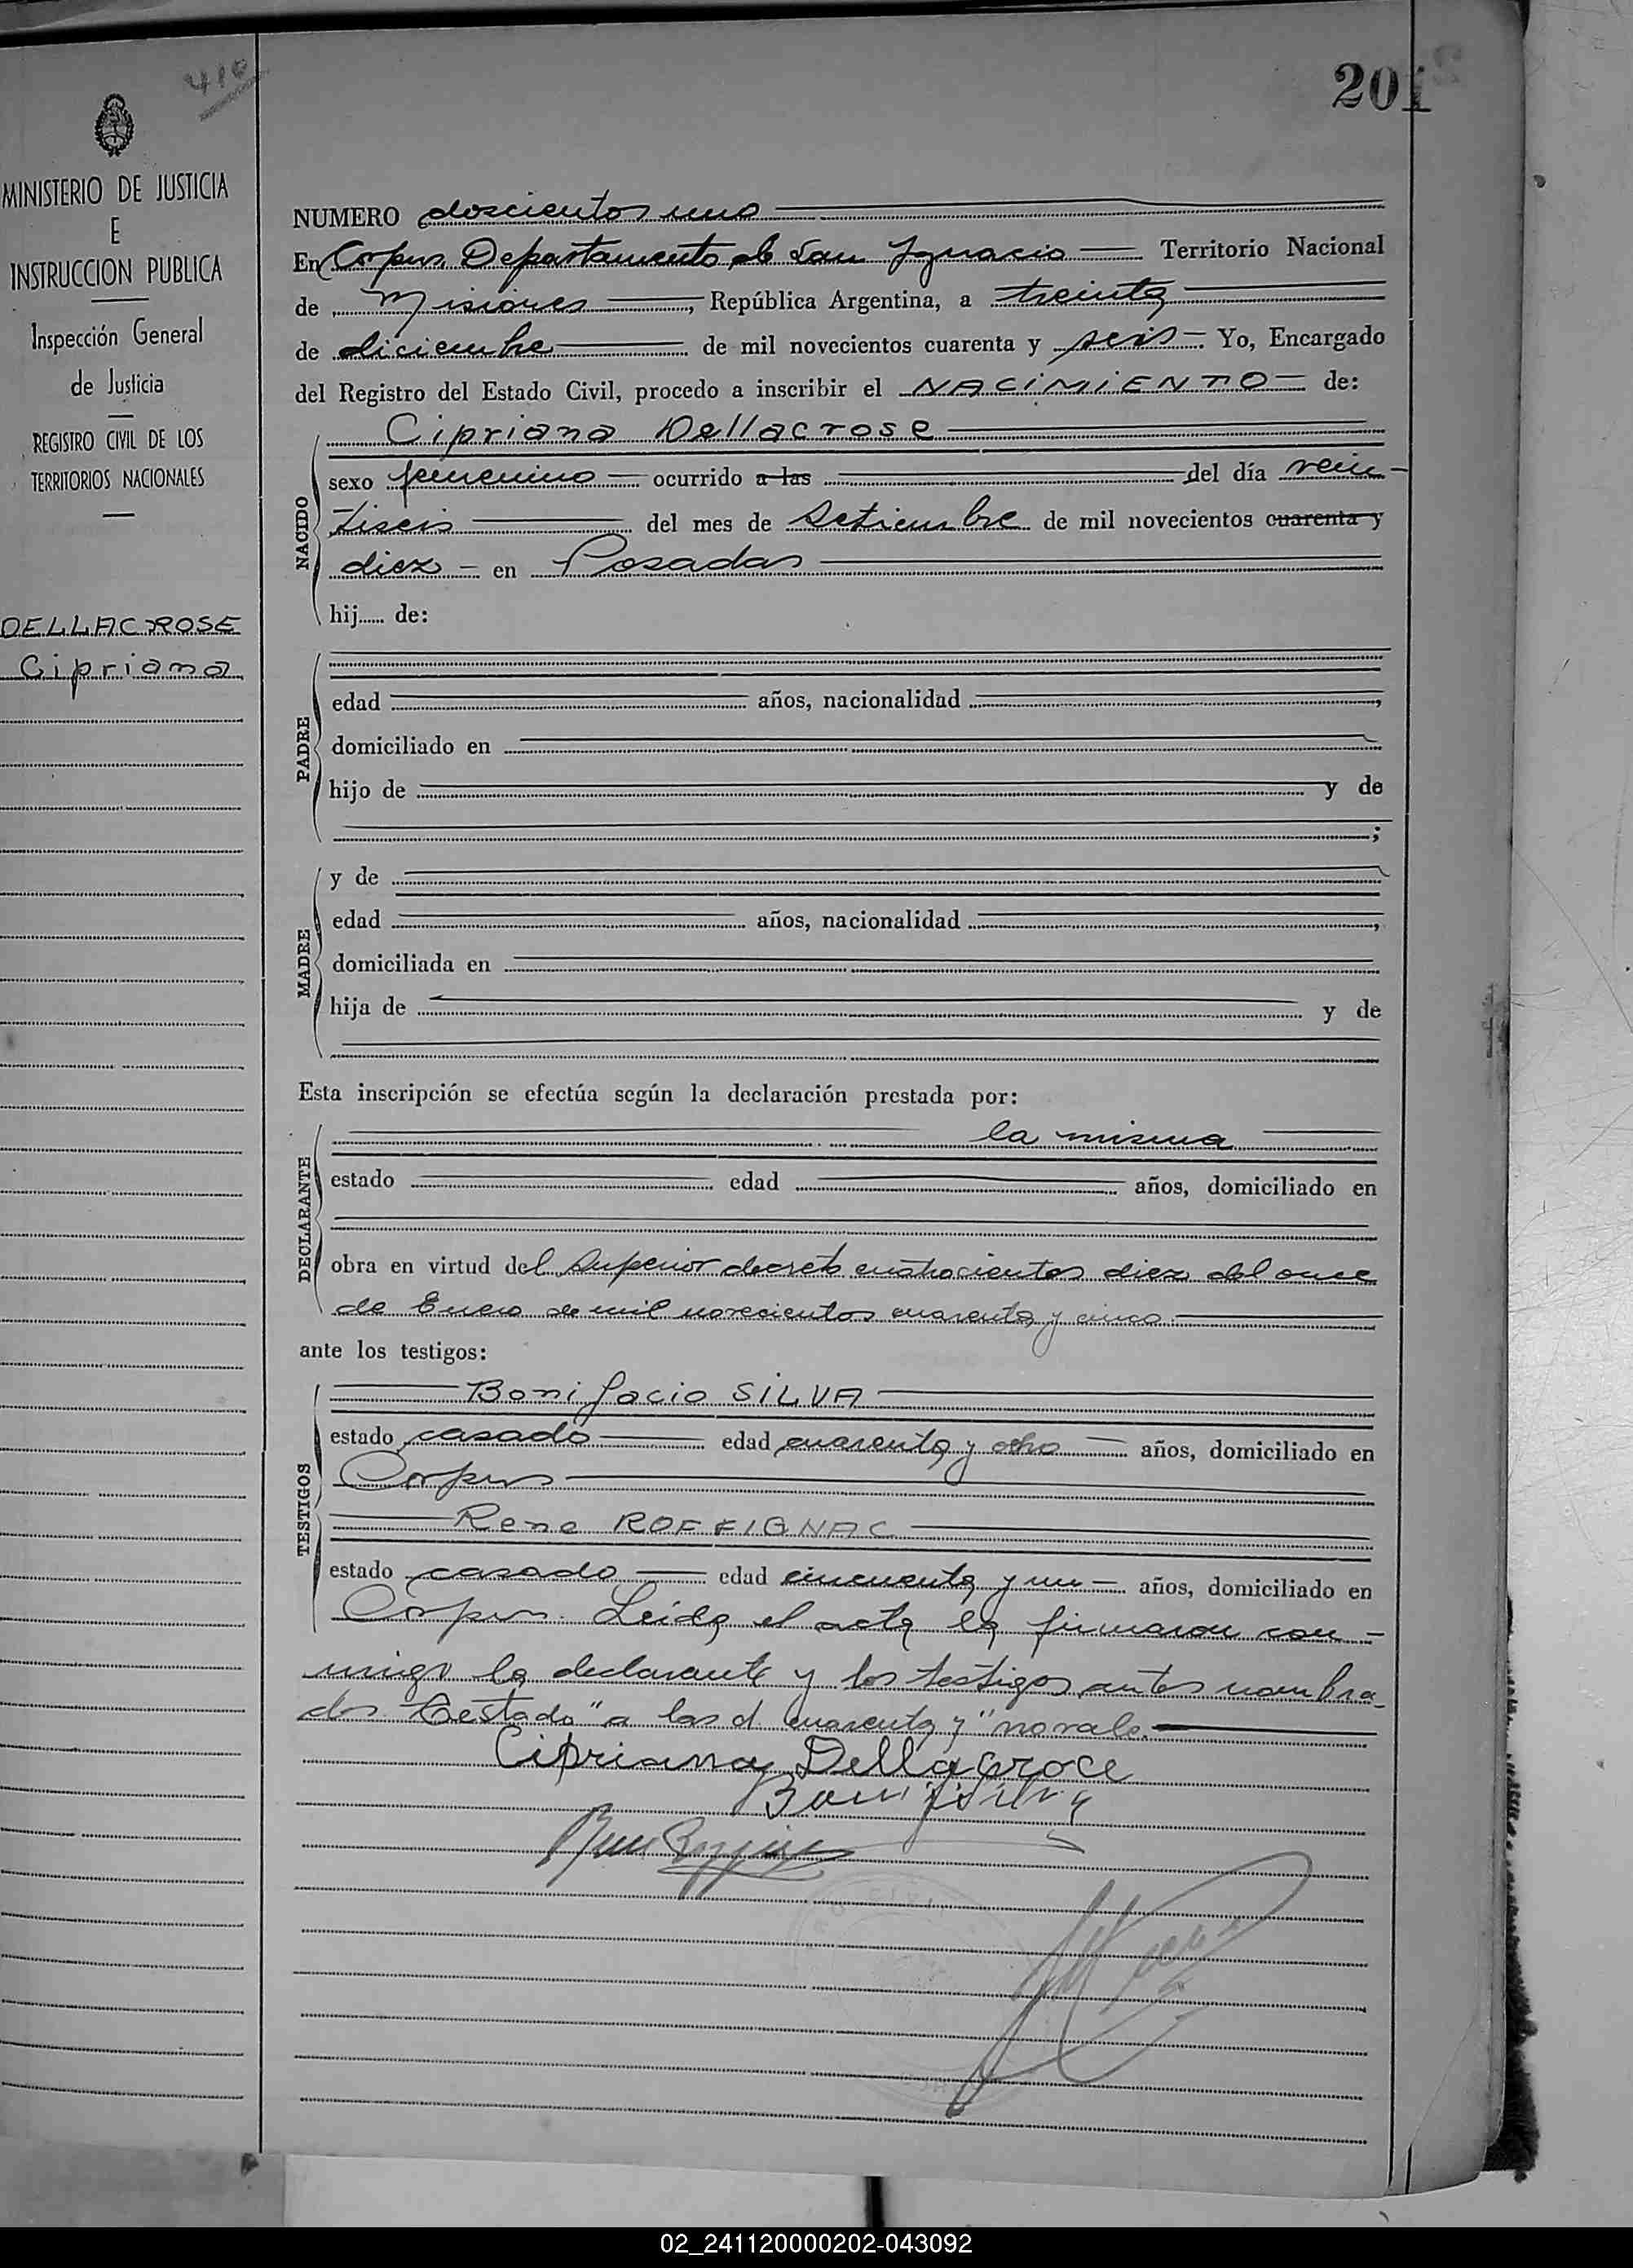 410
201
MINISTERIO DE JUSTICIA
E
INSTRUCCION PUBLICA
Inspección General
de Justicia
REGISTRO CIVIL DE LOS
TERRITORIOS NACIONALES
DELLACROSE
Cipriana
NUMERO doscientos uno
En Corpus Departamento de San Ignacio Territorio Nacional
de Misiones, República Argentina, a treinta
de diciembre de mil novecientos cuarenta y seis. Yo, Encargado
del Registro del Estado Civil, procedo a inscribir el NACIMIENTO de:
NACIDO
Cipriana Dellacrose
sexo femenino ocurrido a las del día vein-
tiseis del mes de Setiembre de mil novecientos cuarenta y
diez en Posadas
hij...... de:
PADRE
edad años, nacionalidad ,
domiciliado en
hijo de y de
;
MADRE
y de
edad años, nacionalidad ,
domiciliada en
hija de y de
Esta inscripción se efectúa según la declaración prestada por:
DECLARANTE
la misma
estado edad años, domiciliado en
obra en virtud del Superior decreto cuatrocientos diez del once
de Enero de mil novecientos cuarenta y cinco.
ante los testigos:
TESTIGOS
Bonifacio SILVA
estado casado edad cuarenta y ocho años, domiciliado en
Corpus
Rene ROFFIGNAC
estado casado edad cincuenta y un años, domiciliado en
Corpus. Leida el acta la firmaron con-
migo la declarante y los testigos antes nombra-
dos Testado "a las d. cuarenta y" no vale.
Cipriana Dellacroce
Bonif Silva
02_241120000202-043092